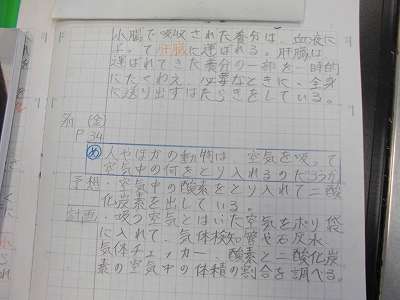 小腸で吸収された養分は、血液に
よって肝臓に運ばれる。肝臓は
運ばれてきた養分の一部を一時的
にたくわえ 必要なときに、全身
に送り出すはたらきをしている。
(金)
P 34
め 人やほかの動物は、空気を吸って
空気中の何をとり入れるのだろうか
予想・空気中の酸素をとり入れて二酸
化炭素を出している。
計画・吸う空気とはいた空気をポリ袋
に入れて、気体検知管や石灰水
気体チェッカー 酸素と二酸化炭
素の空気中の体積の割合を調べる。